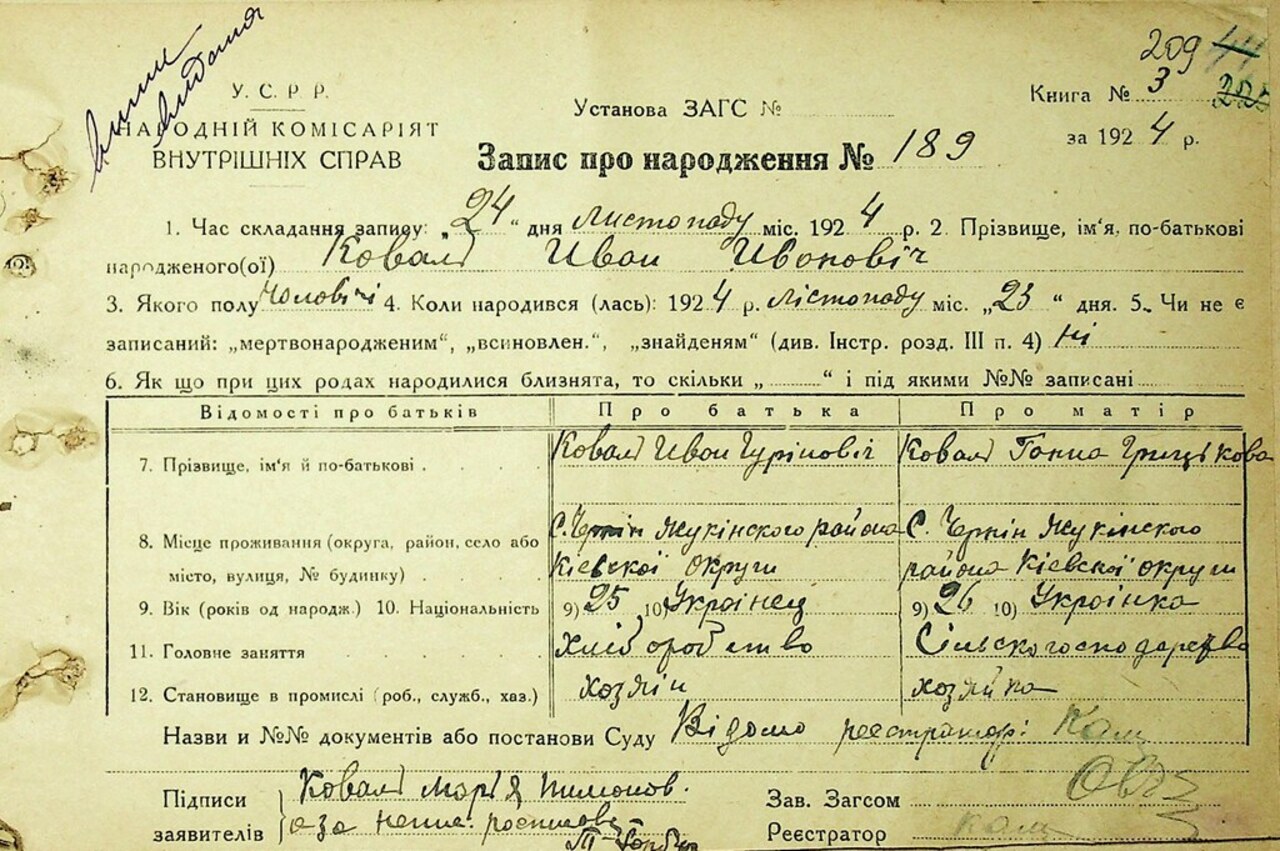 209
У. С. Р. Р.
НАРОДНІЙ КОМІСАРІЯТ
ВНУТРІШНІХ СПРАВ
Установа ЗАГС №
Книга № 3
за 1924 р.
Запис про народження № 189
1. Час складання запису: „24“ дня листопаду міс. 1924 р. 2. Прізвище, ім'я, по-батькові
народженого(ої) Коваль Иван Ивановіч
3. Якого полу Чоловічі 4. Коли народився (лась): 1924 р. лістопаду міс. „23“ дня. 5. Чи не є
записаний: „мертвонародженим“, „всиновлен.“, „знайденям“ (див. Інстр. розд. III п. 4) Ні
6. Як що при цих родах народилися близнята, то скільки „ “ і під якими №№ записані
Відомості про батьків Про батька Про матір
7. Прізвище, ім'я й по-батькові Коваль Иван Гуріновіч Коваль Ганна Грицькова
8. Місце проживання (округа, район, село або С. Чернін Жукінского района С. Чернін Жукінского
місто, вулиця, № будинку) Кіевскої округи района Кіевскої округи
9. Вік (років од народж.) 10. Національність 9) 25 10) Українец 9) 26 10) Українка
11. Головне заняття Хлібороб ство Сільского господарство
12. Становище в промислі (роб., служб., хаз.) хозяін хозяйка
Назви и №№ документів або постанови Суду Відомо реєстратор:
Підписи Коваль Марія Пимонов. Зав. Загсом
заявителів а за непис. Реєстратор